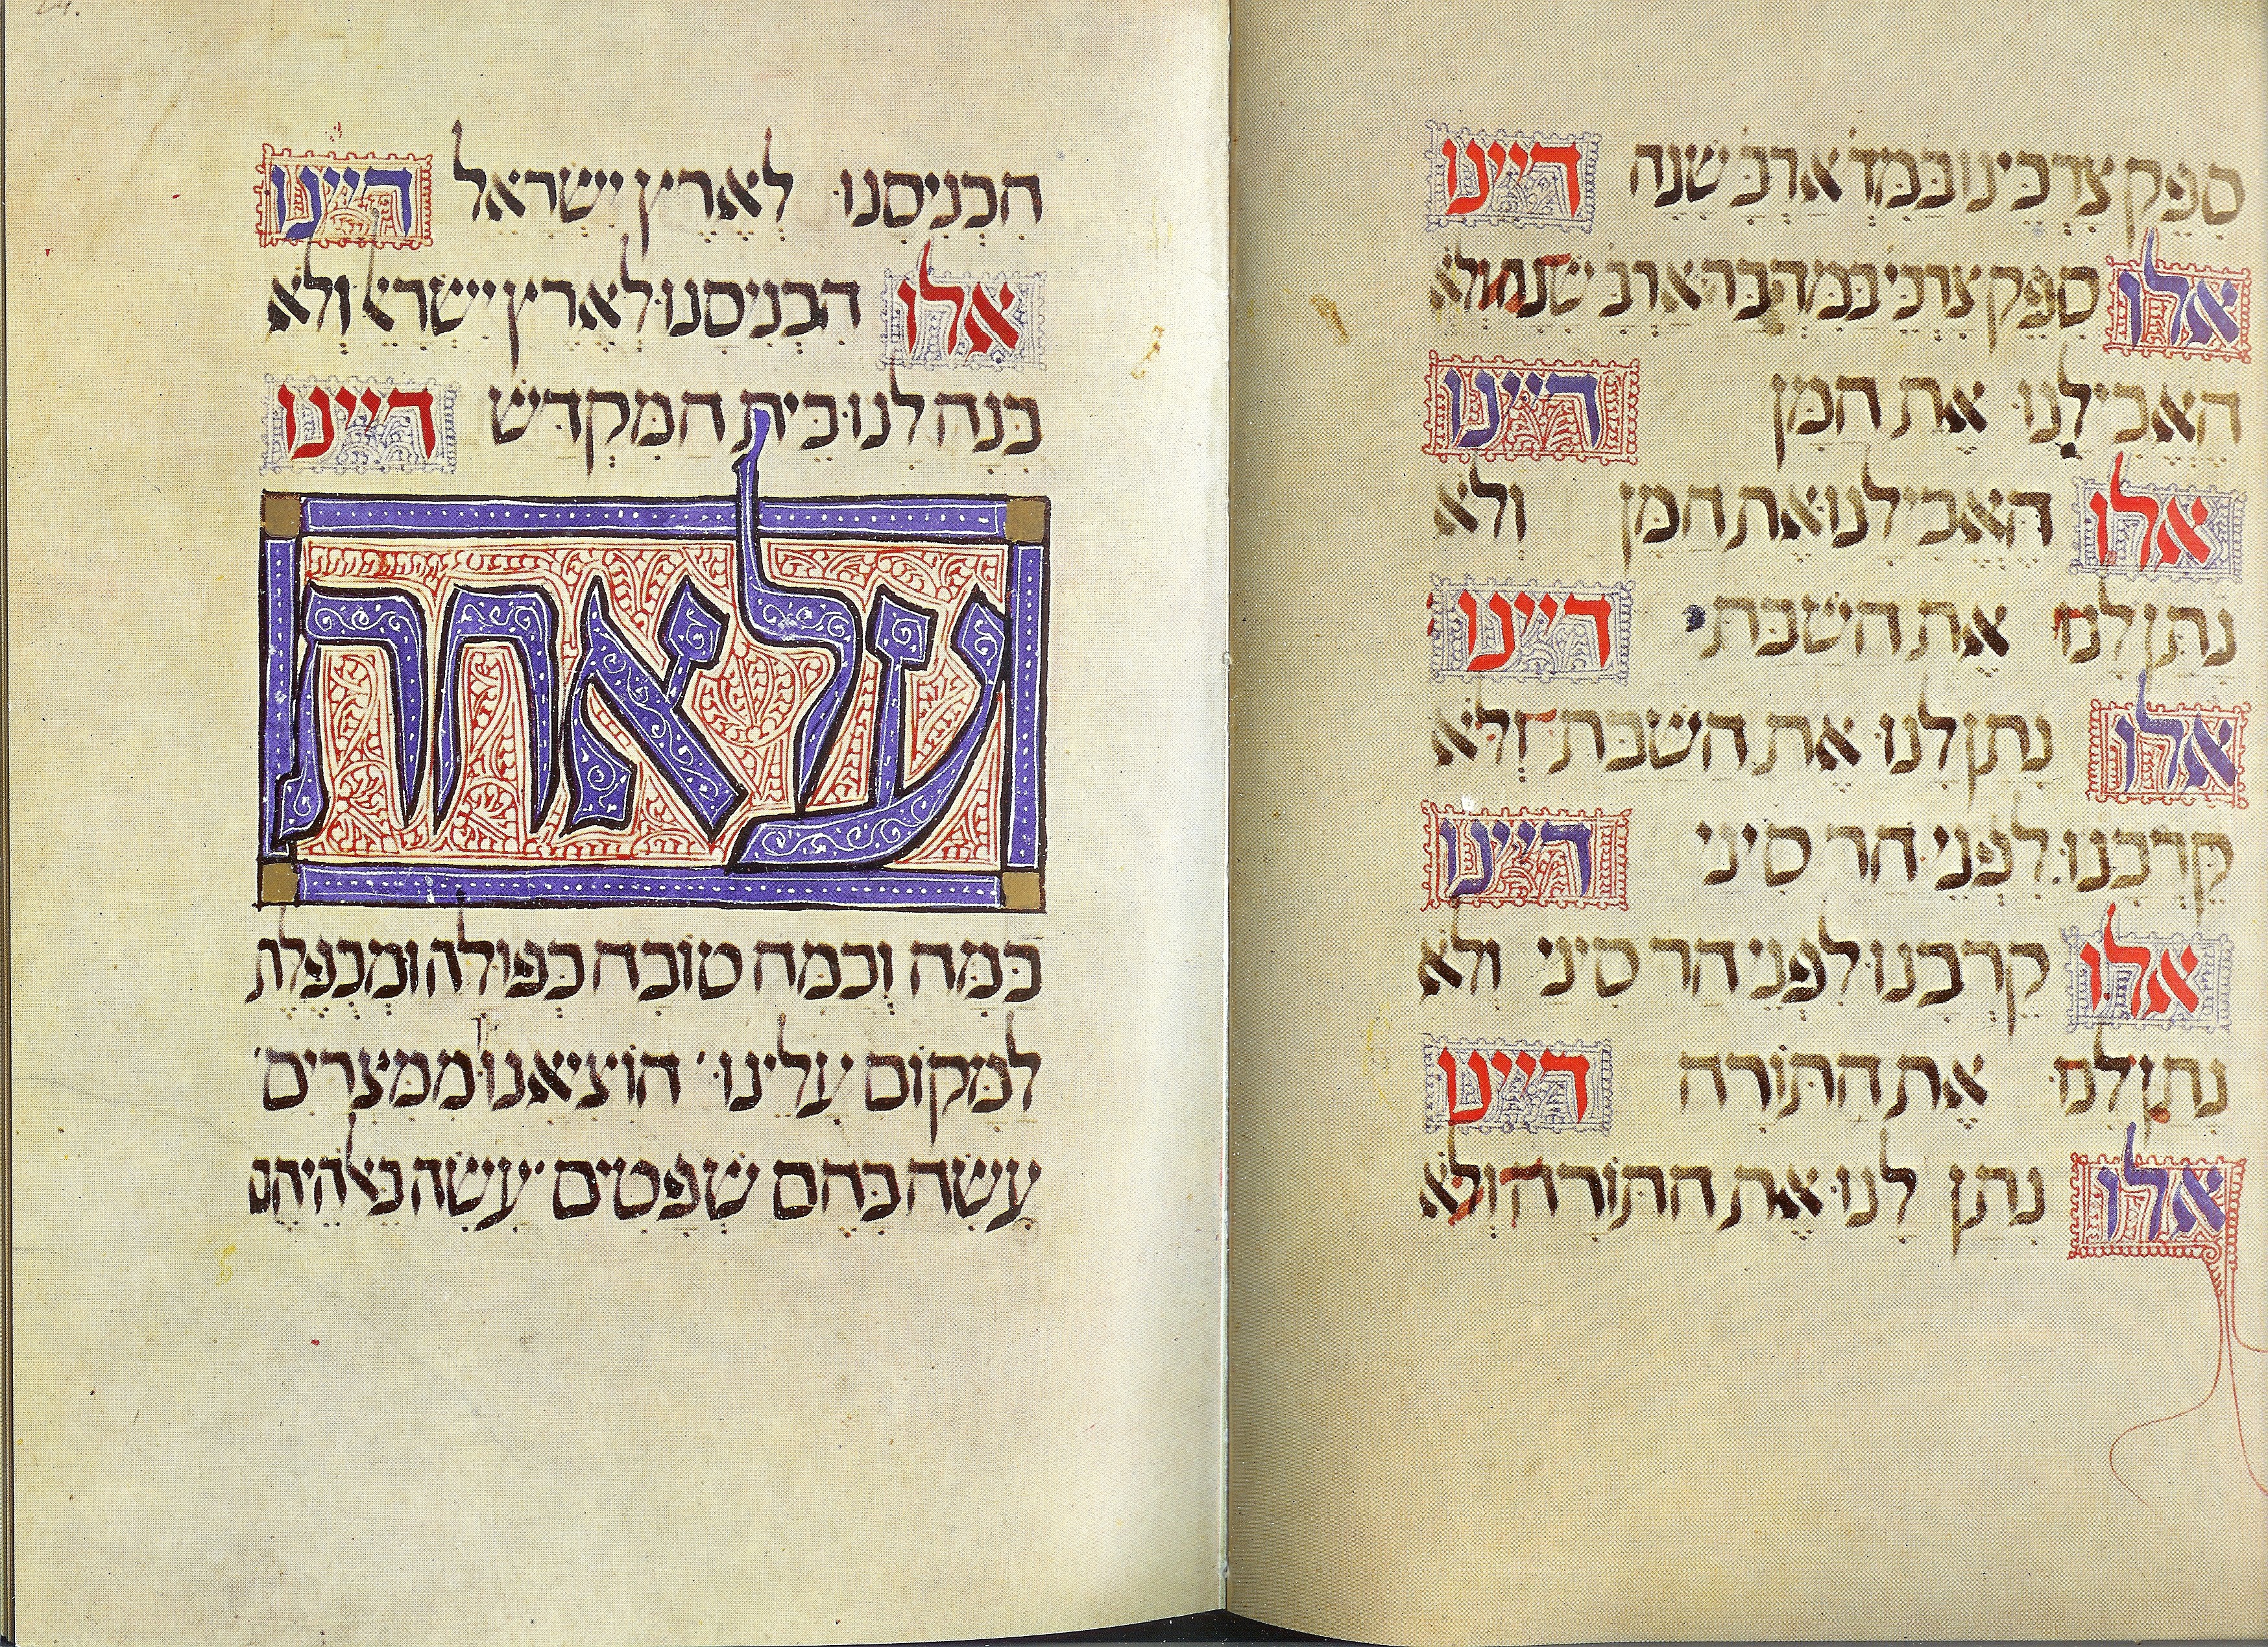 סִפֵּק צׇרְכֵּינוּ בַּמִּדְ אַרְבָּ שָׁנָה דיינו
אלו סִפֵּק צׇרְכֵּי בַּמִּדְבָּר אַרְבָּ שָׁנָה וְלֹא
הֶאֱכִילָנוּ אֶת הַמָּן דיינו
אלו הֶאֱכִילָנוּ אֶת הַמָּן וְלֹא
נָתַן לָנוּ אֶת הַשַּׁבָּת דיינו
אלו נָתַן לָנוּ אֶת הַשַּׁבָּת וְלֹא
קֵרְבָנוּ לִפְנֵי הַר סִינַי דיינו
אלו קֵרְבָנוּ לִפְנֵי הַר סִינַי וְלֹא
נָתַן לָנוּ אֶת הַתּוֹרָה דיינו
אלו נָתַן לָנוּ אֶת הַתּוֹרָה וְלֹא
הִכְנִיסָנוּ לְאֶרֶץ יִשְׂרָאֵל דיינו
אלו הִכְנִיסָנוּ לְאֶרֶץ יִשְׂרָאֵל וְלֹא
בָּנָה לָנוּ בֵּית הַמִּקְדָּשׁ דיינו
על אחת
כַּמָּה וְכַמָּה טוֹבָה כְּפוּלָה וּמְכֻפֶּלֶת
לַמָּקוֹם עָלֵינוּ הוֹצִיאָנוּ מִמִּצְרַיִם
עָשָׂה בָּהֶם שְׁפָטִים עָשָׂה בֵּאלֹהֵיהֶם